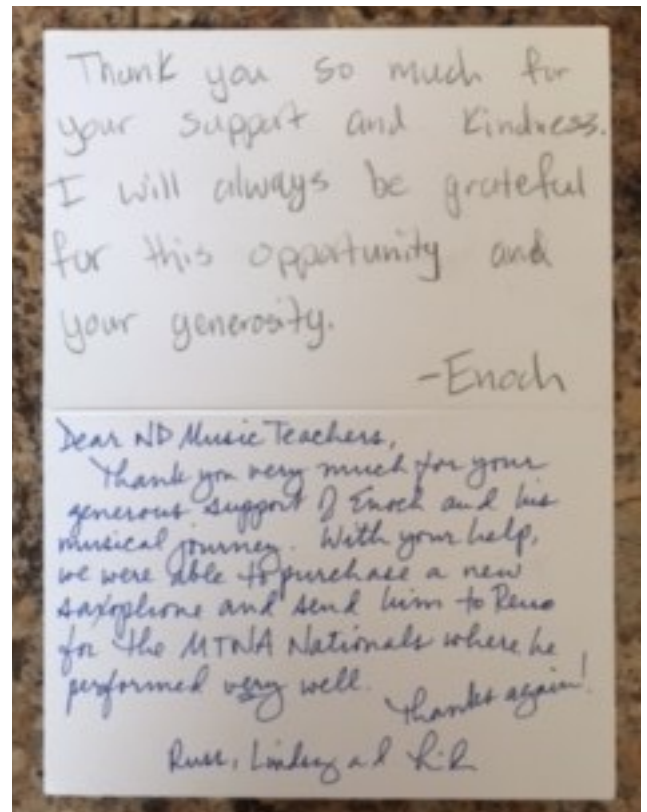 Thank you so much for
your support and kindness.
I will always be grateful
for this opportunity and
your generosity.
-Enoch
Dear ND Music Teachers,
Thank you very much for your
generous support of Enoch and his
musical journey. With your help,
we were able to purchase a new
saxophone and send him to Reno
for the MTNA Nationals where he
performed very well.
Thanks again!
Russ, Lindsey and